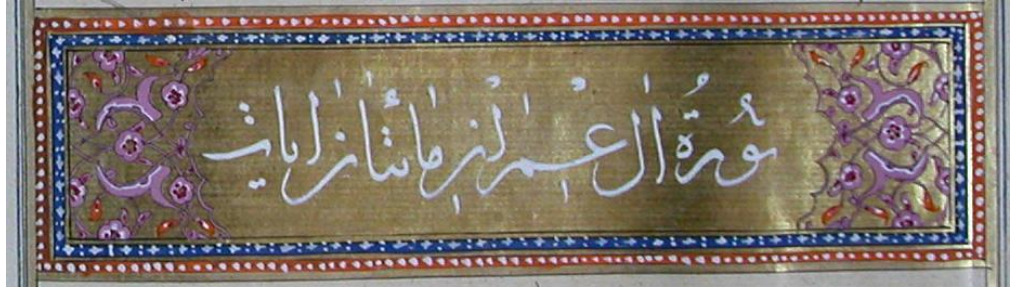 سُورَةُ اٰل عِمْران مائتان ايات